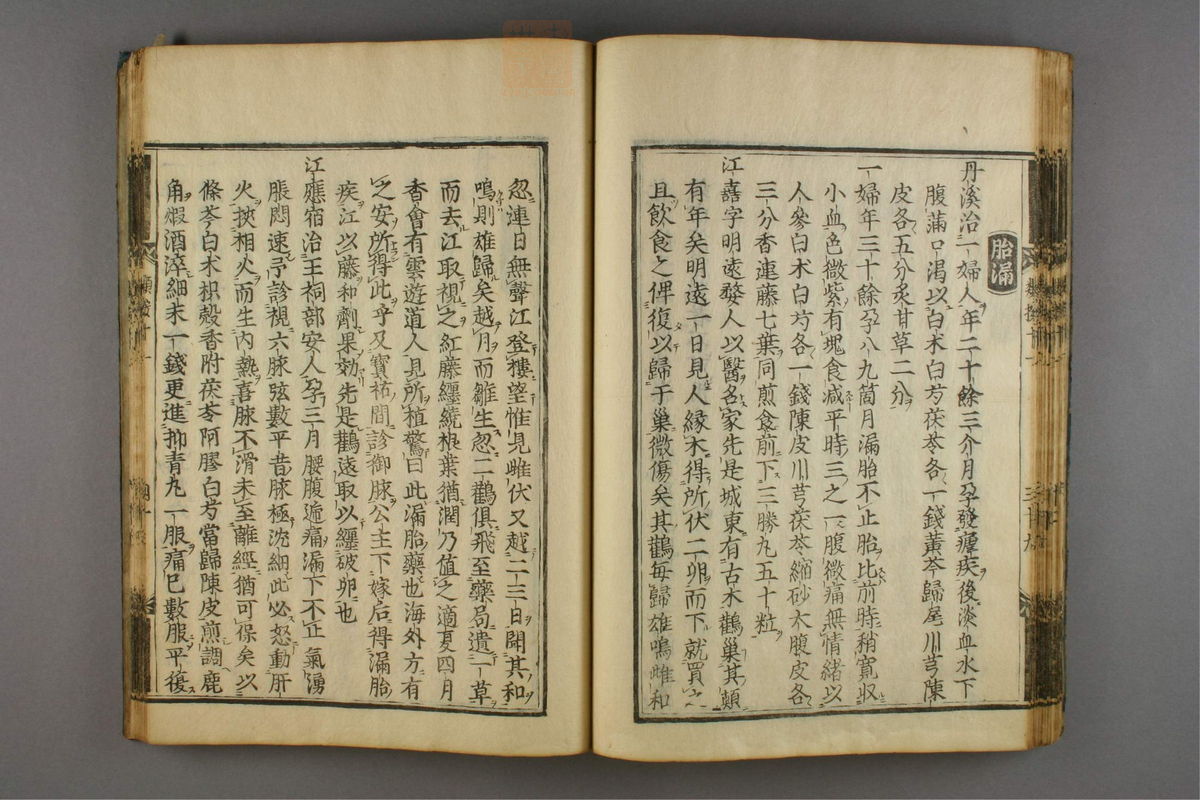 胎漏
丹溪治一婦人年二十餘三个月孕發瘧疾後淡血水下
腹滿口渴以白朮白芍茯苓各一錢黃芩歸尾川芎陳
皮各五分炙甘草二分
一婦年三十餘孕八九箇月漏胎不止胎比前時稍寬収
小血色微紫有塊食减平時三之一腹微痛無情緒以
人參白朮白芍各一錢陳皮川芎茯苓縮砂大腹皮各
三分香連藤七葉同煎食前下三勝丸五十粒
江嘉字明遠婺人以醫名家先是城東有古木鸛巢其顛
有年矣明遠一日見人緣木得所伏二卵而下就買之
且飲食之俾復以歸于巢微傷矣其鸛每歸雄鳴雌和
忽連日無聲江登樓望惟見雌伏又越二三日聞其和
鳴則雄歸矣越月而雛生忽二鸛俱飛至藥局遺一草
而去江取視之紅藤纏繞根葉猶潤乃值之適夏四月
香會有雲遊道人見所植驚曰此漏胎藥也海外方有
之安所得此乎又寶祐間診御脉公主下嫁后得漏胎
疾江以藤和劑果効先是鸛遠取以纏破卵也
江應宿治王祠部安人孕三月腰腹遍痛漏下不止氣湧
脹悶速予診視六脉弦數平昔脉極沈細此必怒動肝
火挾相火而生內熱喜脉不滑未至離經猶可保矣以
條芩白朮枳殼香附茯苓阿膠白芍當歸陳皮煎調鹿
角煆酒淬細末一錢更進抑青丸一服痛巳數服平復